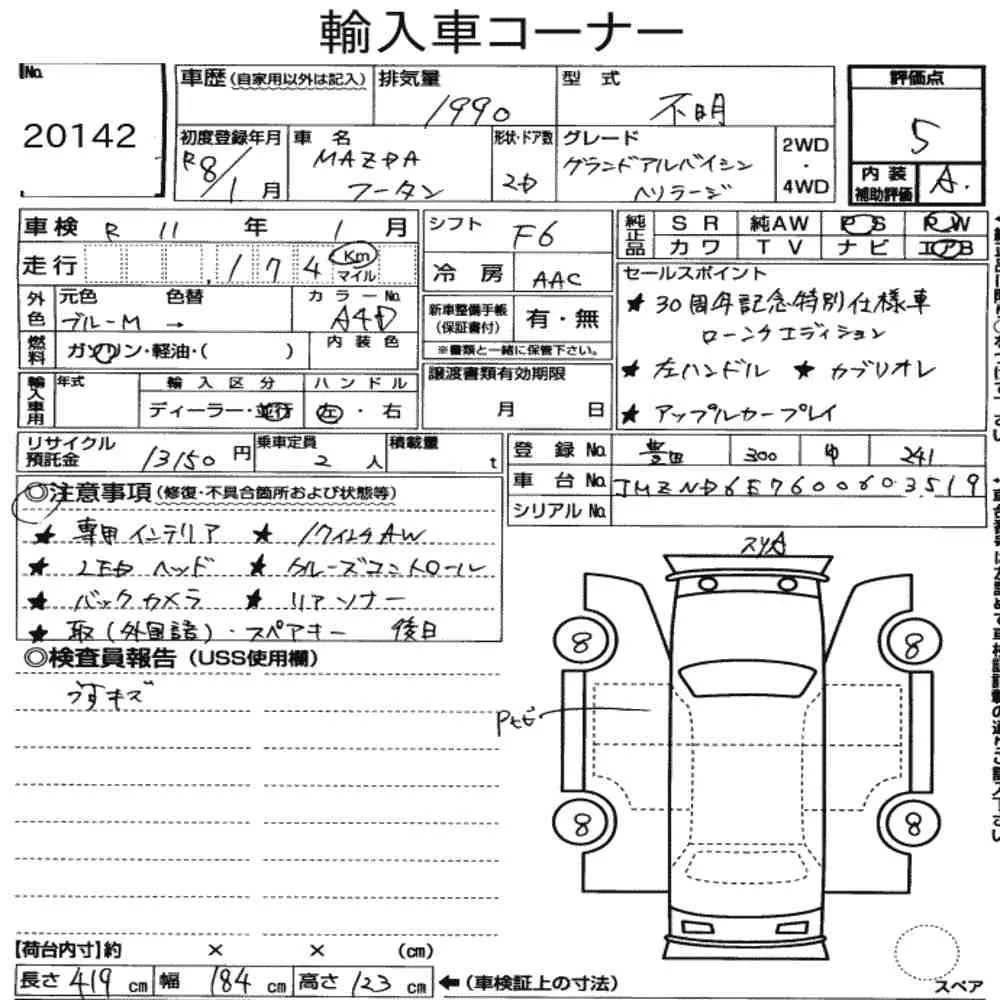 輸入車コーナー
No.
20142
車歴(自家用以外は記入)
排気量
1990
型式
不明
評価点
5
初度登録年月
R8/1月
車名
MAZDA
形状・ドア数
2D
グレード
グランドアルバイシン
ヘリテージ
2WD
・
4WD
内装
補助評価
A.
車検 R 11 年 1 月
シフト
F6
純正品
SR 純AW PS PW
カワ TV ナビ エアB
走行
174
Km
マイル
冷房
AAC
セールスポイント
★ 30周年記念特別仕様車
ローンチエディション
★ 左ハンドル ★ カブリオレ
★ アップルカープレイ
外色
元色 色替
ブルーM →
カラーNo.
A4D
新車整備手帳
(保証書付)
有・無
※書類と一緒に保管下さい。
燃料
ガソリン・軽油・( )
内装色
輸入車用
年式
輸入区分
ディーラー・並行
ハンドル
左・右
譲渡書類有効期限
月 日
リサイクル
預託金
13150円
乗車定員
2人
積載量
t
登録No.
豊田 300 ゆ 241
車台No.
JMZND6E7600603519
シリアルNo.
◎注意事項(修復・不具合箇所および状態等)
★ 専用インテリア ★ 17インチAW
★ LEDヘッド ★ クルーズコントロール
★ バックカメラ ★ リアソナー
★ 取(外国語)・スペアキー 後日
◎検査員報告(USS使用欄)
うすキズ
スリA
8
8
8
8
【荷台内寸】約 × × (cm)
長さ 419 cm 幅 184 cm 高さ 123 cm ←(車検証上の寸法)
スペア